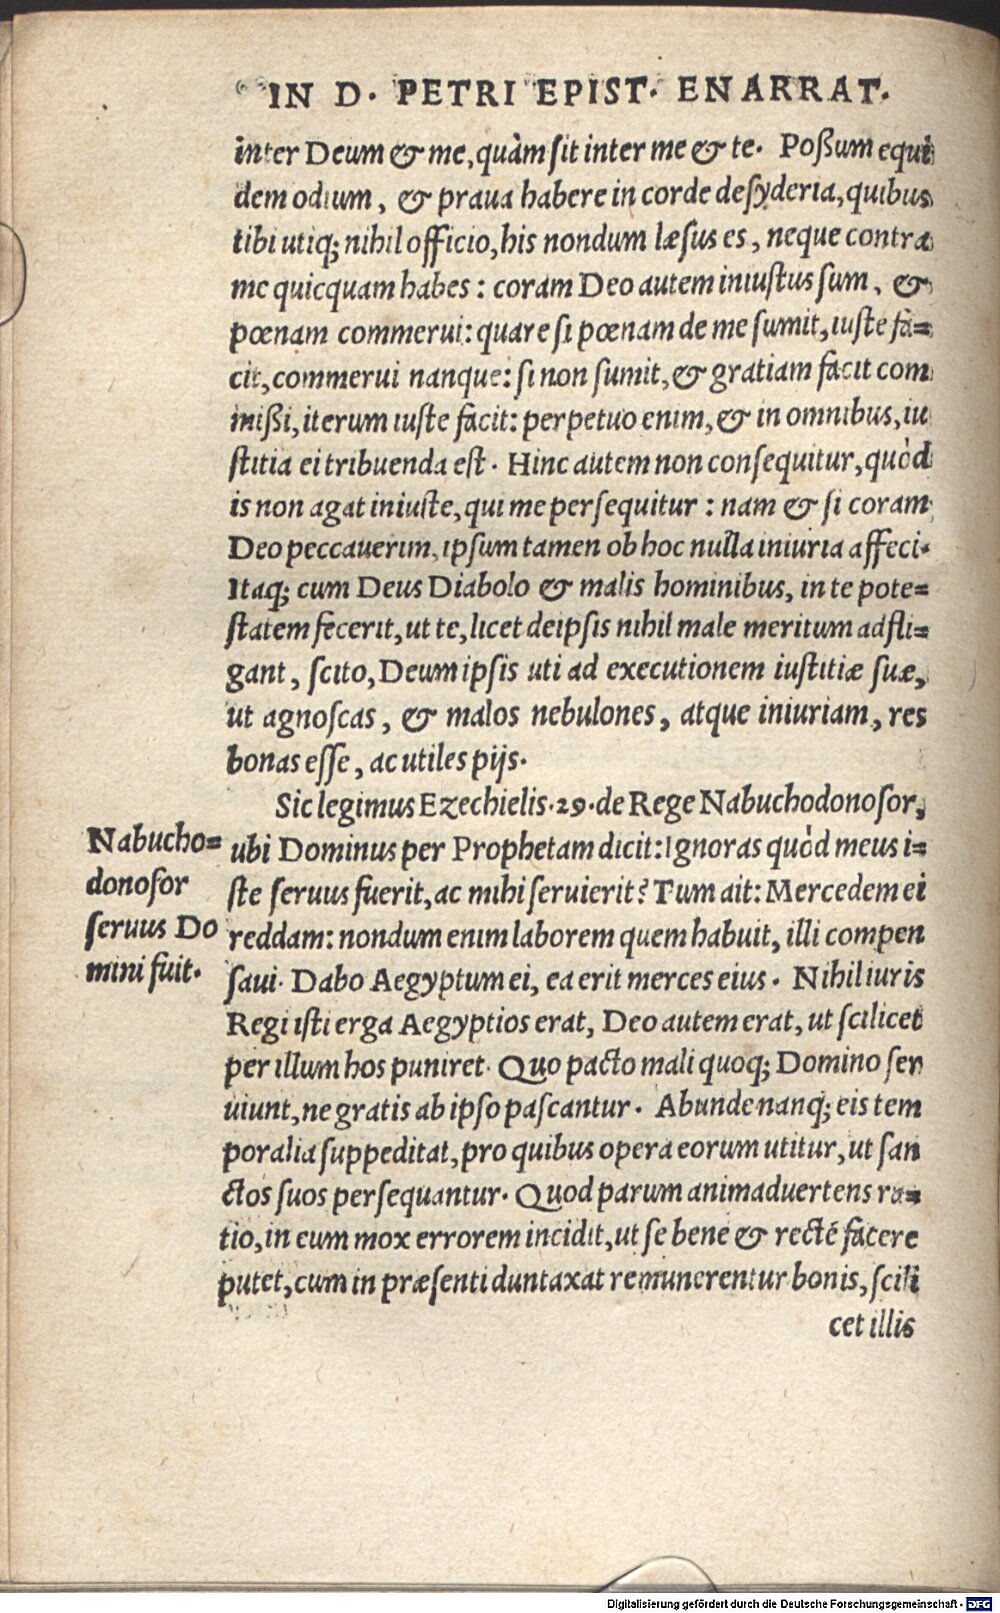 IN D. PETRI EPIST. ENARRAT.
inter Deum & me, quàm sit inter me & te. Poßum equi
dem odium, & praua habere in corde desyderia, quibus
tibi utiq; nihil officio, his nondum læsus es, neque contra
me quicquam habes: coram Deo autem iniustus sum, &
pœnam commerui: quare si pœnam de me sumit, iuste fa=
cit, commerui nanque: si non sumit, & gratiam facit com
mißi, iterum iuste facit: perpetuo enim, & in omnibus, iu
stitia ei tribuenda est. Hinc autem non consequitur, quòd
is non agat iniuste, qui me persequitur: nam & si coram
Deo peccauerim, ipsum tamen ob hoc nulla iniuria affeci.
Itaq; cum Deus Diabolo & malis hominibus, in te pote=
statem fecerit, ut te, licet deipsis nihil male meritum adfli=
gant, scito, Deum ipsis uti ad executionem iustitiæ suæ,
ut agnoscas, & malos nebulones, atque iniuriam, res
bonas esse, ac utiles pijs.
Sic legimus Ezechielis.29.de Rege Nabuchodonosor,
Nabucho=
donosor
seruus Do
mini fuit.
ubi Dominus per Prophetam dicit: Ignoras quòd meus i=
ste seruus fuerit, ac mihi seruierit? Tum ait: Mercedem ei
reddam: nondum enim laborem quem habuit, illi compen
saui. Dabo Aegyptum ei, ea erit merces eius. Nihil iuris
Regi isti erga Aegyptios erat, Deo autem erat, ut scilicet
per illum hos puniret. Quo pacto mali quoq; Domino ser
uiunt, ne gratis ab ipso pascantur. Abunde nanq; eis tem
poralia suppeditat, pro quibus opera eorum utitur, ut san
ctos suos persequantur. Quod parum animaduertens ra=
tio, in eum mox errorem incidit, ut se bene & recté facere
putet, cum in præsenti duntaxat remunerentur bonis, scili
cet illis
Digitalisierung gefördert durch die Deutsche Forschungsgemeinschaft - DFG